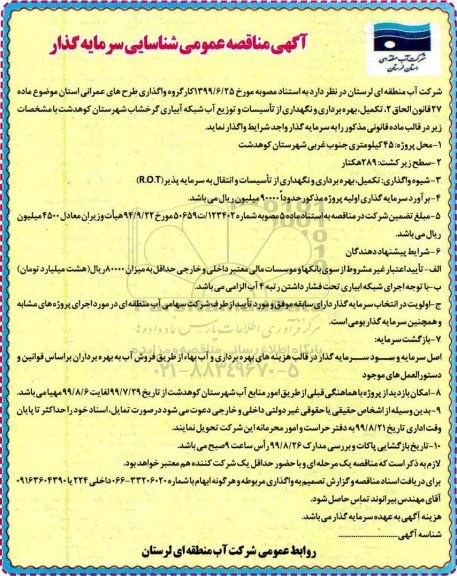 آگهی مناقصه عمومی شناسایی سرمایه گذار
شرکت آب منطقه ای
استان لرستان
شرکت آب منطقه ای لرستان در نظر دارد به استناد مصوبه مورخ ۱۳۹۹/۶/۲۵ کارگروه واگذاری طرح های عمرانی استان موضوع ماده
۲۷ قانون الحاق ۲، تکمیل، بهره برداری و نگهداری از تأسیسات و توزیع آب شبکه آبیاری گرخشاب شهرستان کوهدشت با مشخصات
زیر در قالب ماده قانونی مذکور را به سرمایه گذار واجد شرایط واگذار نماید.
۱- محل پروژه: ۴۵ کیلومتری جنوب غربی شهرستان کوهدشت
۲- سطح زیر کشت: ۲۸۹ هکتار
۳- شیوه واگذاری: تکمیل، بهره برداری و نگهداری از تأسیسات و انتقال به سرمایه پذیر (R.O.T)
۴- برآورد سرمایه گذاری اولیه پروژه مذکور حدوداً ۹۰۰۰۰ میلیون ریال می باشد.
۵- مبلغ تضمین شرکت در مناقصه به استناد ماده ۵ مصوبه شماره ۱۲۳۴۰۲/ت۵۰۶۵۹ مورخ ۹۴/۹/۲۲ هیأت وزیران معادل ۴۵۰۰ میلیون
ریال می باشد.
۶- شرایط پیشنهاد دهندگان
الف- تأیید اعتبار غیر مشروط از سوی بانکها و موسسات مالی معتبر داخلی و خارجی حداقل به میزان ۸۰۰۰۰ ریال (هشت میلیارد تومان)
ب- با توجه اجرای شبکه آبیاری تحت فشار داشتن رتبه ۴ آب الزامی می باشد.
ج- اولویت در انتخاب سرمایه گذار دارای سابقه موفق و مورد تأیید از طرف شرکت سهامی آب منطقه ای در مورد اجرای پروژه های مشابه
و همچنین سرمایه گذار بومی است.
۷- بازگشت سرمایه:
اصل سرمایه و ســـود ســـرمایه گذار در قالب هزینه های بهره برداری و آب بهاء از طریق فروش آب به بهره برداران براساس قوانین و
دستورالعمل های موجود
۸- امکان بازدید از پروژه با هماهنگی قبلی از طریق امور منابع آب شهرستان کوهدشت از تاریخ ۹۹/۷/۲۹ لغایت ۹۹/۸/۶ مهیا می باشد.
۹- بدین وسیله از اشخاص حقیقی یا حقوقی غیر دولتی داخلی و خارجی دعوت می شود در صورت تمایل، اسناد خود را حداکثر تا پایان
وقت اداری تاریخ ۹۹/۸/۲۱ به دفتر حراست و امور محرمانه این شرکت تحویل نمایند.
۱۰- تاریخ بازگشایی پاکات و بررسی مدارک ۹۹/۸/۲۶ رأس ساعت ۹ صبح می باشد.
لازم به ذکر است که مناقصه یک مرحله ای و با حضور حداقل یک شرکت کننده هم معتبر خواهد بود.
برای دریافت اسناد مناقصه و گزارش تصمیم به واگذاری مربوطه و هر گونه ابهام با شماره ۳۳۲۰۶۰۲۰-۰۶۶ داخلی ۲۲۴ یا ۰۹۱۶۳۶۰۴۳۹۰
آقای مهندس بیرانوند تماس حاصل شود.
هزینه آگهی به عهده سرمایه گذار می باشد.
شناسه آگهی ...........................
روابط عمومی شرکت آب منطقه ای لرستان
پایگاه اطلاع رسانی مناقصه و مزایده
۰۲۱-۸۸۳۴۹۶۷۰-۵